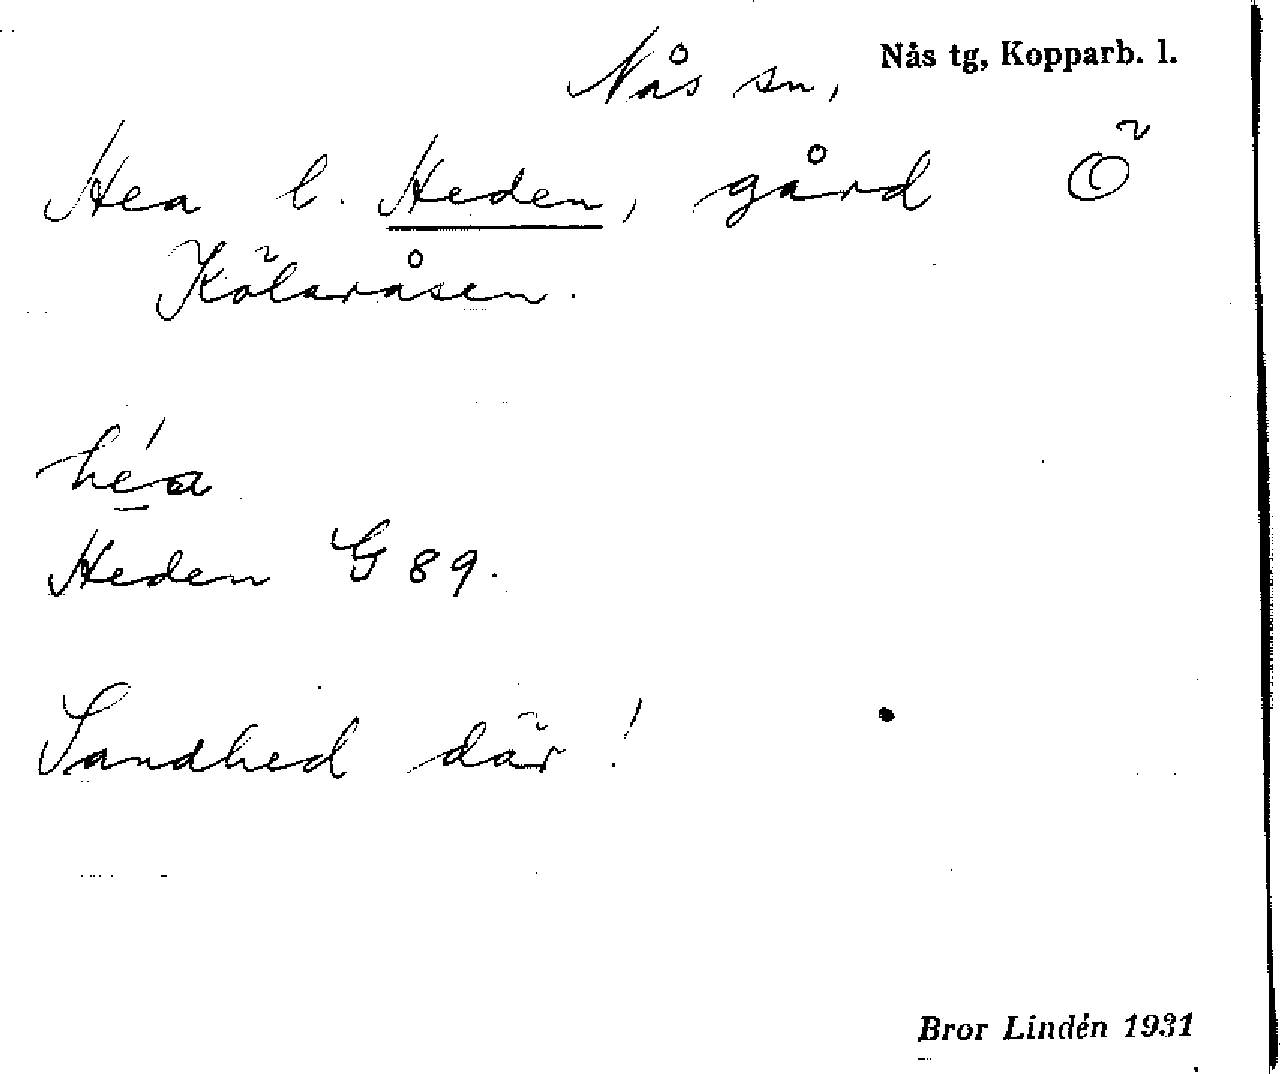 Nås tg, Kopparb. l.
Nås sn,
Hea l. Heden, gård Ö
Kölaråsen.
héa
Heden G 89.
Sandhed där!
Bror Lindén 1931